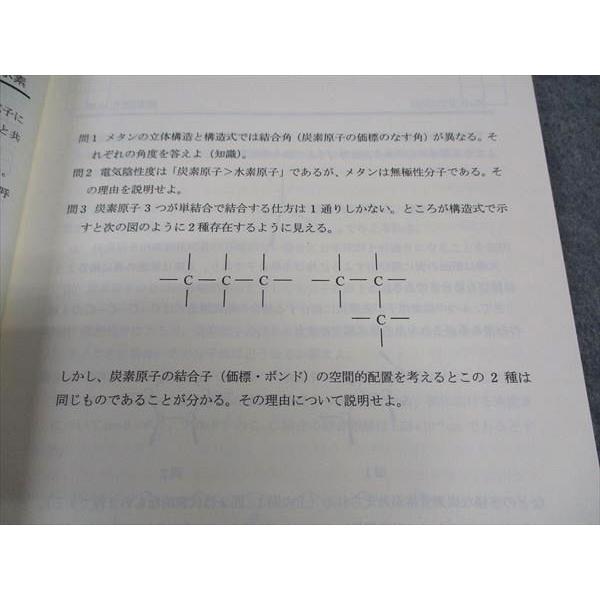 水素
子に
と共
。
呼
問1 メタンの立体構造と構造式では結合角（炭素原子の価標のなす角）が異なる。そ
れぞれの角度を答えよ（知識）。
問2 電気陰性度は「炭素原子＞水素原子」であるが、メタンは無極性分子である。そ
の理由を説明せよ。
問3 炭素原子3つが単結合で結合する仕方は1通りしかない。ところが構造式で示
すと次の図のように2種存在するように見える。
C C C C C
C
しかし、炭素原子の結合子（価標・ボンド）の空間的配置を考えるとこの 2 種は
同じものであることが分かる。その理由について説明せよ。